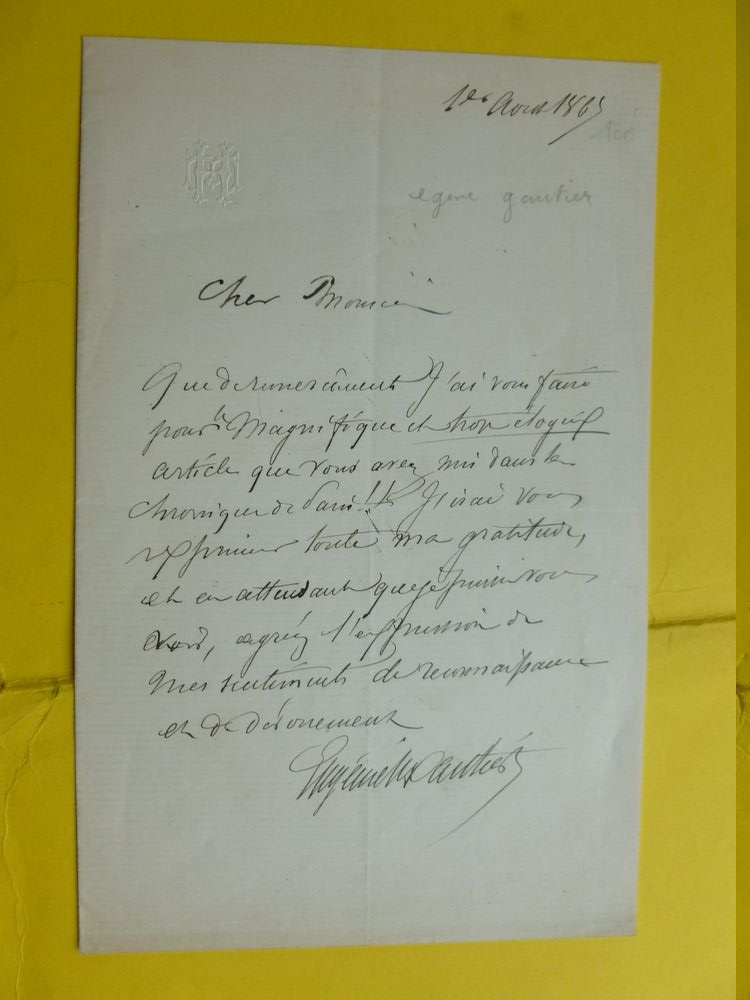 1er Aout 1865
166
egene gautier
Cher Monsieur
Que de remerciments J'ai vous faire
pour le Magnifique et trop élogieux
article que vous avez mis dans la
chronique de Paris!! J'irai vous
exprimer toute ma gratitude,
et en attendant que je puisse vous
voir, agréez l'expression de
mes sentiments de reconnaissance
et de dévouement
Eugène Gautier